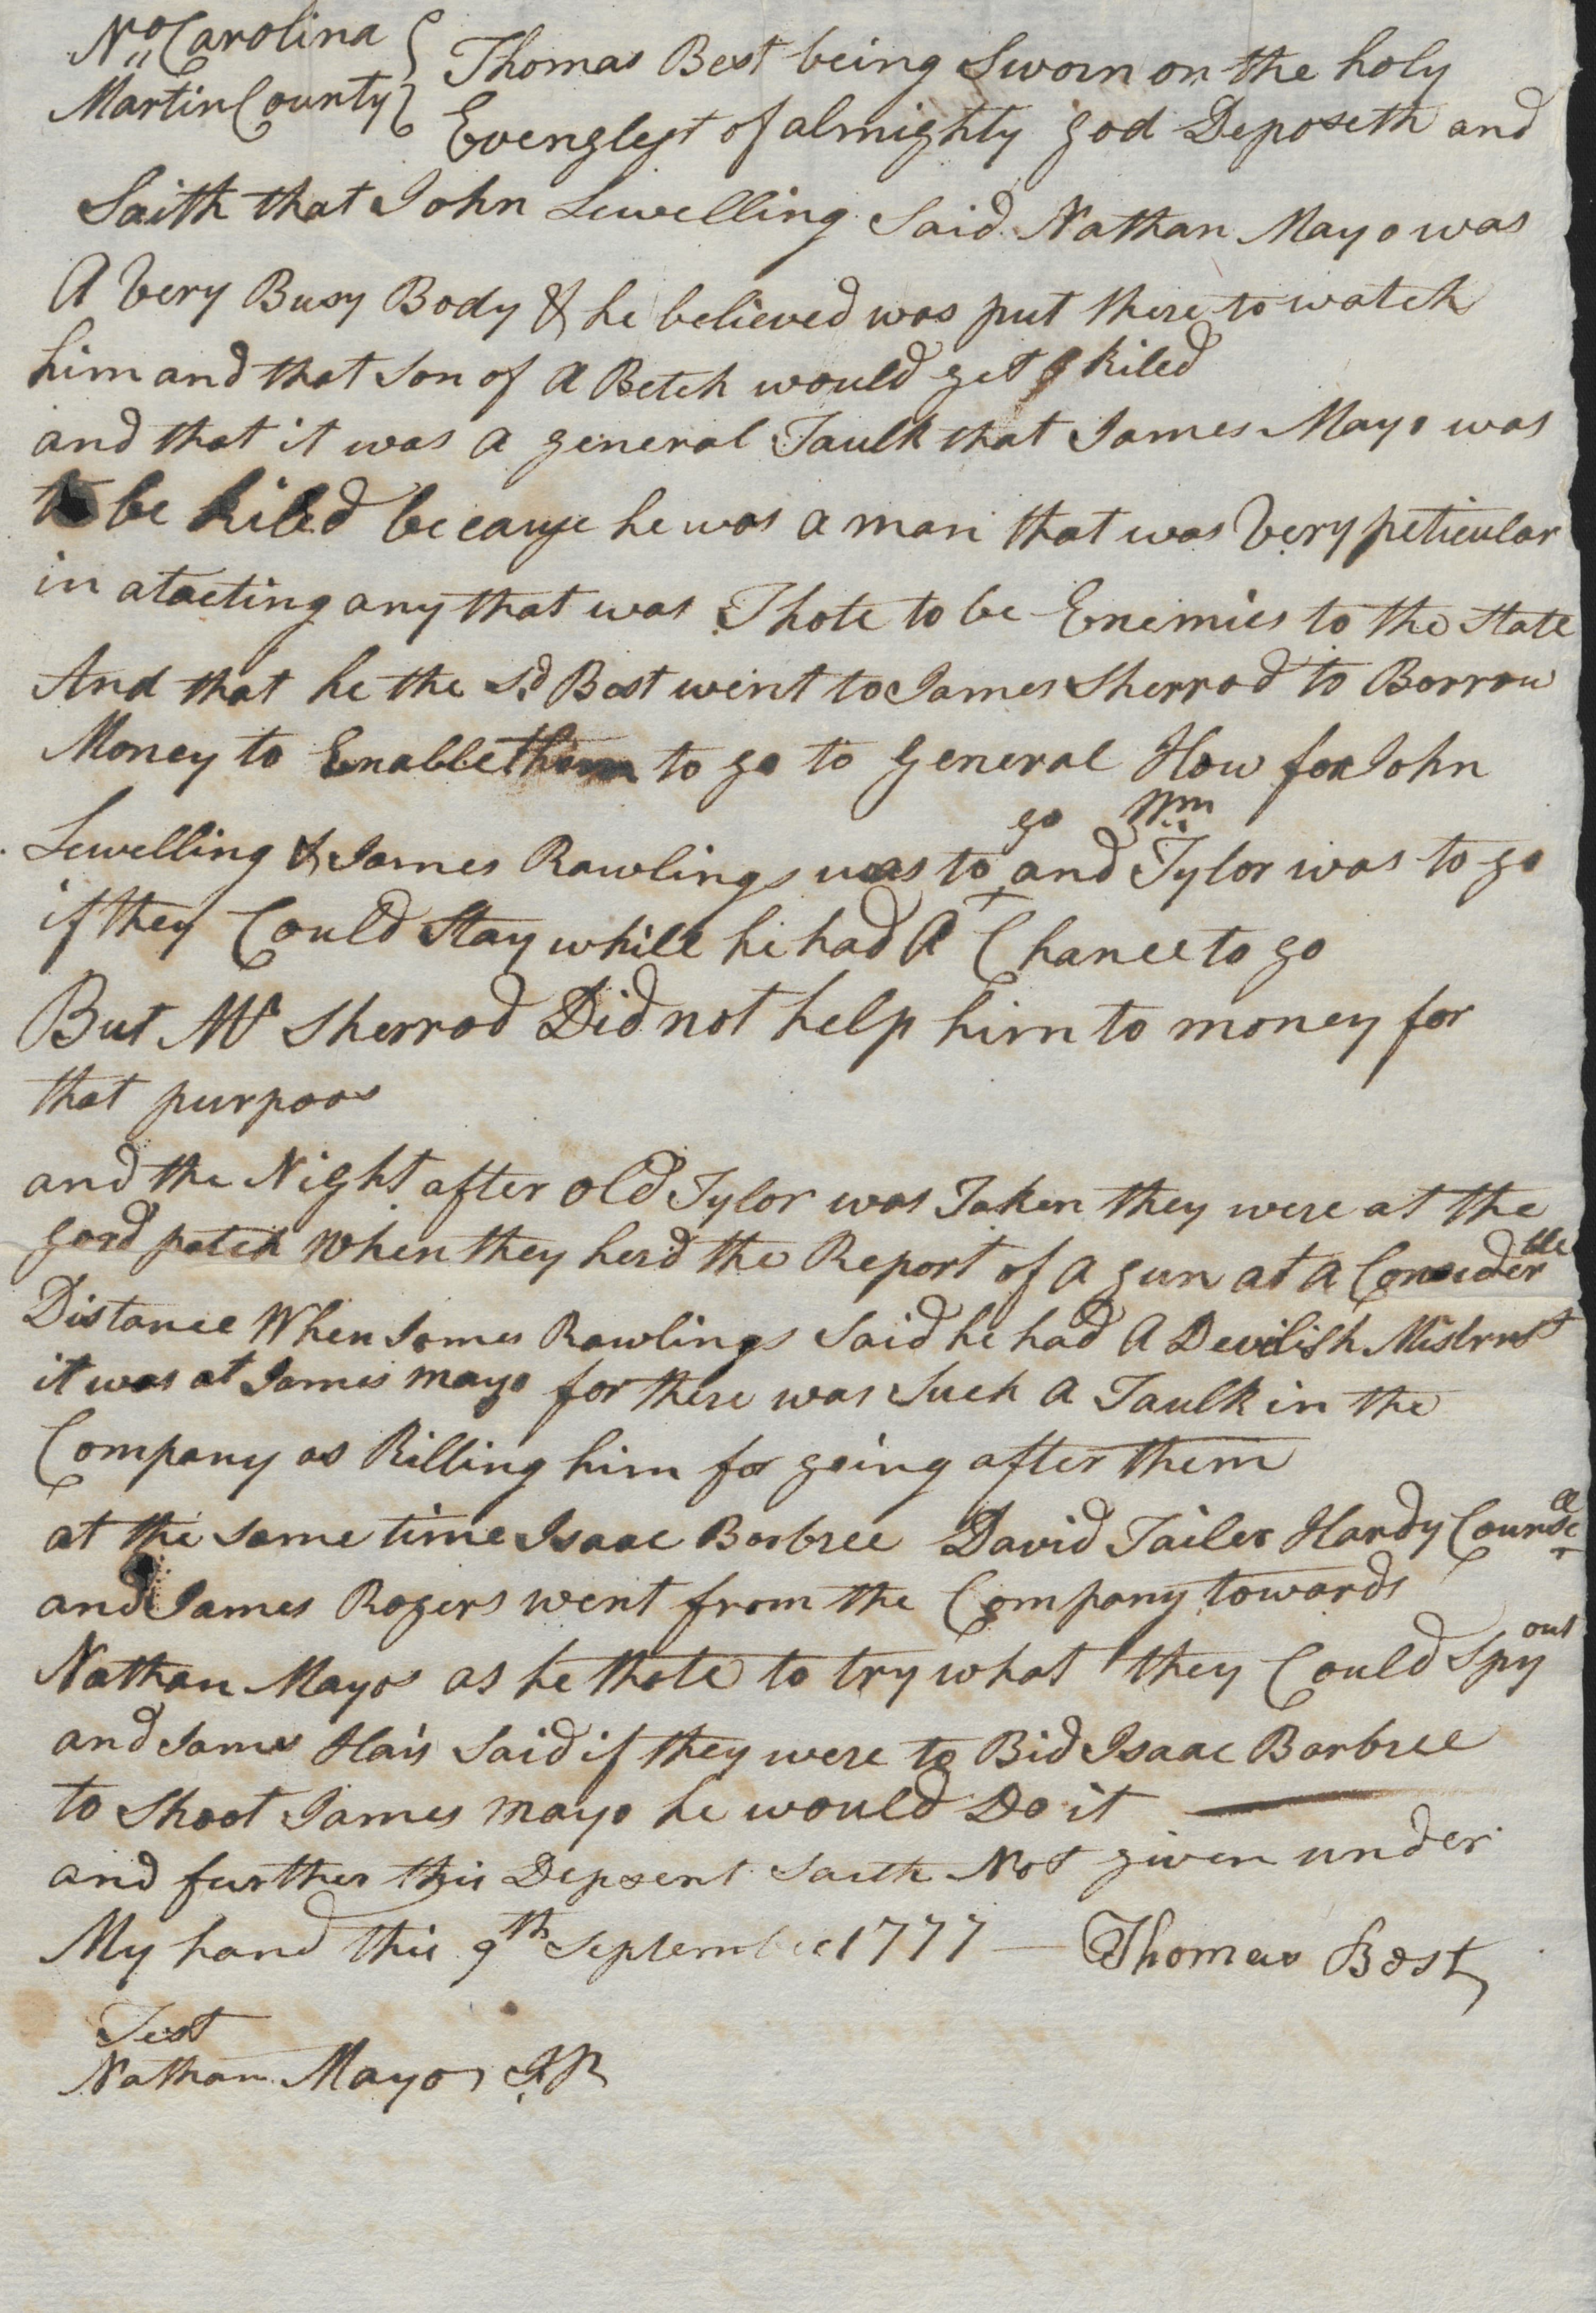 No Carolina } Thomas Best being Sworn on the holy
Martin County } Evenglest of almighty god Deposeth and
Saith that John Lewelling Said Nathan Mayo was
A Very Busy Body & he believed was put there to watch
him and that Son of A Betch would get kiled
and that it was a general Taulk that James Mayo was
to be kiled because he was a man that was Very peticular
in atacting any that was Thote to be Enemies to the State
And that he the Sd Best went to James Sherrod to Borrow
Money to Enable them to go to General How for John
Lewelling & James Rawlings was to go and Wm Tylor was to go
if they Could Stay while he had A Chance to go
But Mr Sherrod Did not help him to money for
that purpoos
and the Night after old Tylor was Taken they were at the
gord patch When they herd the Report of a gun at a Considerble
Distance When James Rawlings Said he had A Devilish Mistrust
it was at James mayo for there was Such a Taulk in the
Company as Killing him for going after them
at the Same time Isaac Barbree David Tailer Hardy
and James Rogers went from the Company towards
Nathan Mayos as he thote to try what they Could Spy out
and James Hais Said if they were to Bid Isaac Barbree
to Shoot James mayo he would Do it
and further this Deposent Saith Not given under
My hand this 9th September 1777 — Thomas Best
Test
Nathan Mayo, JP